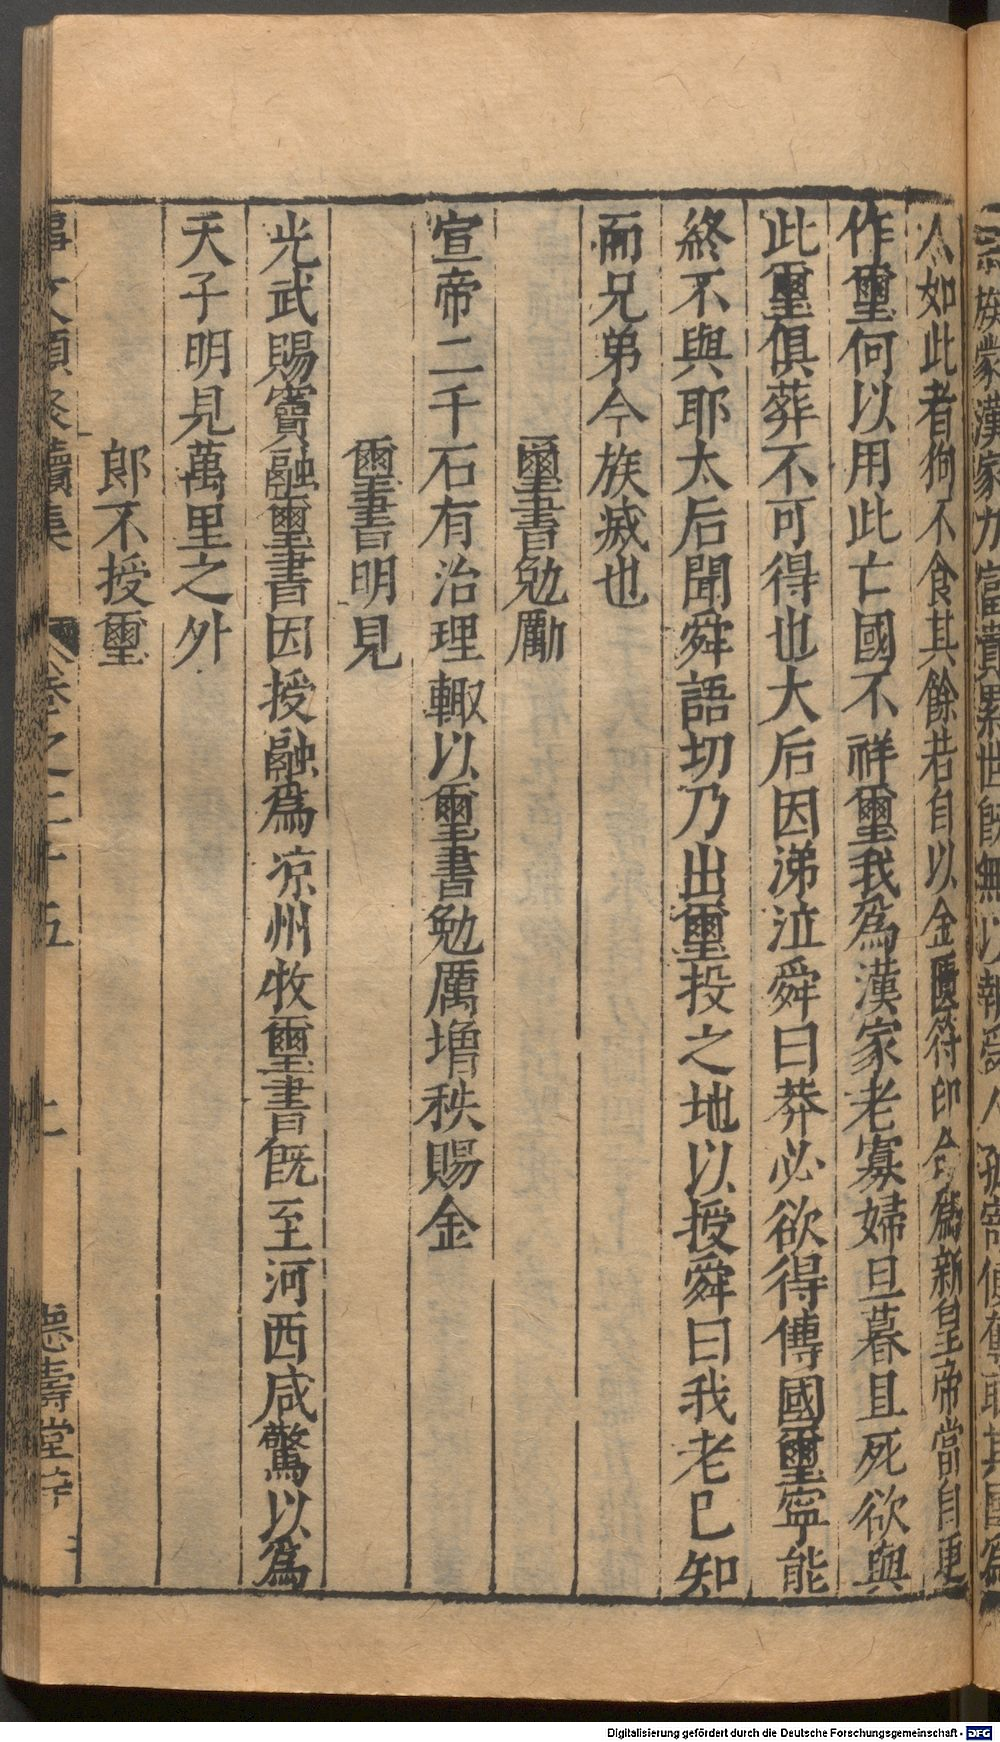 人如此者狗不食其餘若自以金匱符印命爲新皇帝當自更
作璽何以用此亡國不祥璽我爲漢家老寡婦旦暮且死欲與
此璽俱葬不可得也大后因涕泣舜曰莽必欲得傳國璽寧能
終不與耶太后聞舜語切乃出璽投之地以授舜曰我老已知
而兄弟今族滅也
璽書勉勵
宣帝二千石有治理輙以璽書勉厲增秩賜金
璽書明見
光武賜竇融璽書因授融爲凉州牧璽書旣至河西咸驚以爲
天子明見萬里之外
郎不授璽
事文類聚續集
卷之二十五
德壽堂
Digitalisierung gefördert durch die Deutsche Forschungsgemeinschaft - DFG